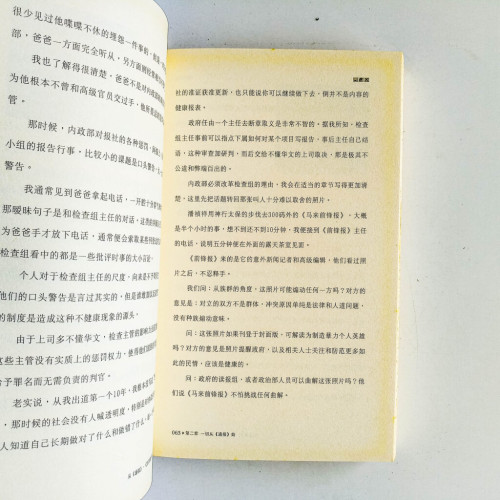 很少见过他喋喋不休的埋怨一件事的
部，爸爸一方面完全听从，另方面
我也了解得很清楚，爸爸不是对内政部
为他根本不曾和高级官员交过手，他所
管。
那时候，内政部对报社的各种惩罚
小组的报告行事。比较小的课题是口头警
警告。
我通常见到爸爸拿起电话，一开
那暧昧句子是和检查组主任的对话。这
爸爸手才放下电话，通常便会索取某些
查组看中的都是一些批评时事的大小
个人对于检查组主任的尺度，向来是不
他们的口头警告是言过其实的。但是
的制度是造成这种不健康现象的源头。
由于上司多不懂华文，检查主管的
这些主管没有实质上的惩罚权力，
给予罪名而无需负责的判官。
老实说，从我出道第一个10年，我
那时候的社会没有人喊透明度，特别是
人知道自己长期做对了什么和做错了什么，
社的准证获准更新，也只能说你可以继续做下去，倒并不是内容的
健康报表。
政府任由一个主任去断章取义是非常不智的。据我所知，检查
组主任事前可以指点下属如何对某个项目写报告，事后主任自己结
语，这种审查加研判，而后交给不懂华文的上司取决，那是极其不
公道和弊端百出的。
内政部必须改革检查组的理由，我会在适当的章节写得更加清
楚，这里先把话题转回那张叫人十分难以取舍的照片。
潘候样用神行太保的步伐去300码外的《马来前锋报》，大概
是半个小时的事，想不到还不到10分钟，我便接到《前锋报》主任
的电话，说明五分钟便在外面的露天茶室见面。
《前锋报》来的是它的意外新闻记者和高级编辑，他们看过照
片之后，不忍释手。
我们问：从族群的角度，这照片可能煽动任何一方吗？对方的
意见是：对立的双方不是群体，冲突原因单纯是法律和人道问题，
没有种族煽动意味。
问：这张照片如果刊登于封面版，可解读为制造暴力个人英雄
吗？对方的意见是照片提醒政府，以及相关人士关注和防范更多如
此的民情，应该是健康的。
问：政府的读报组，或者政治部人员可以曲解这张照片吗？他
们说《马来前锋报》不怕挑战任何曲解。